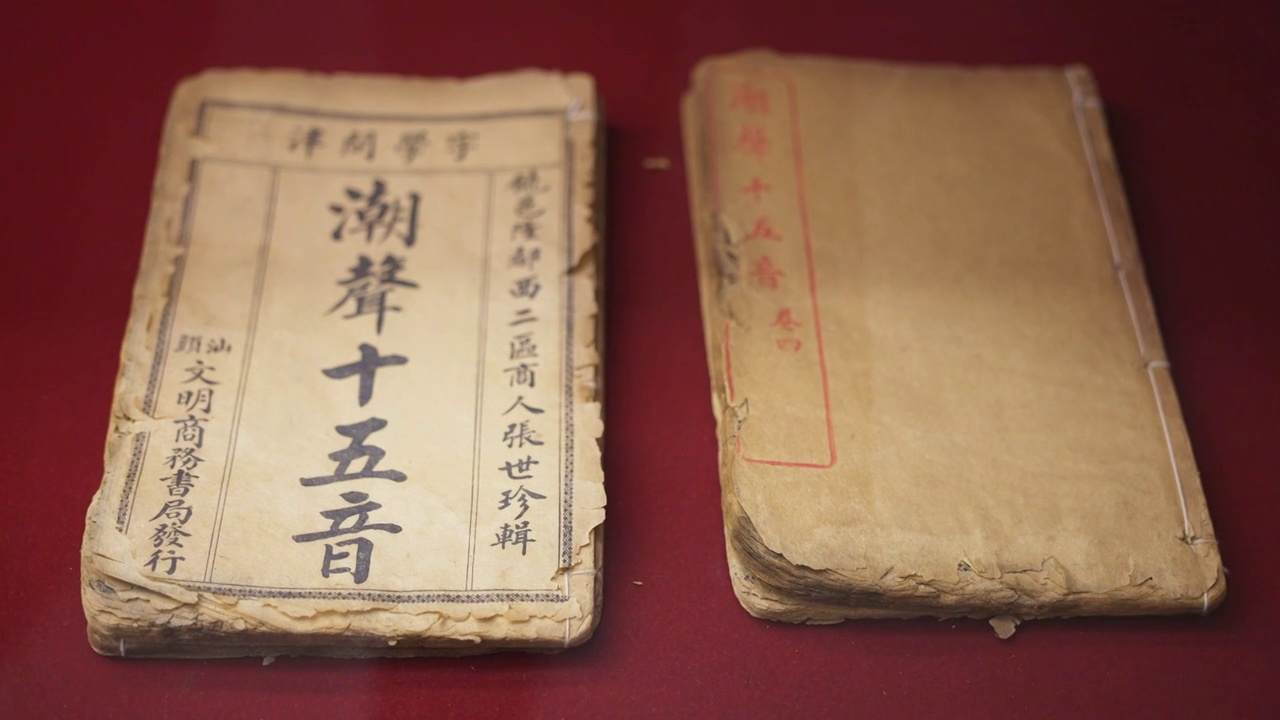 字學問津
饒邑隆都西二區商人張世珍輯
潮聲十五音
汕頭文明商務書局發行
潮聲十五音
卷四